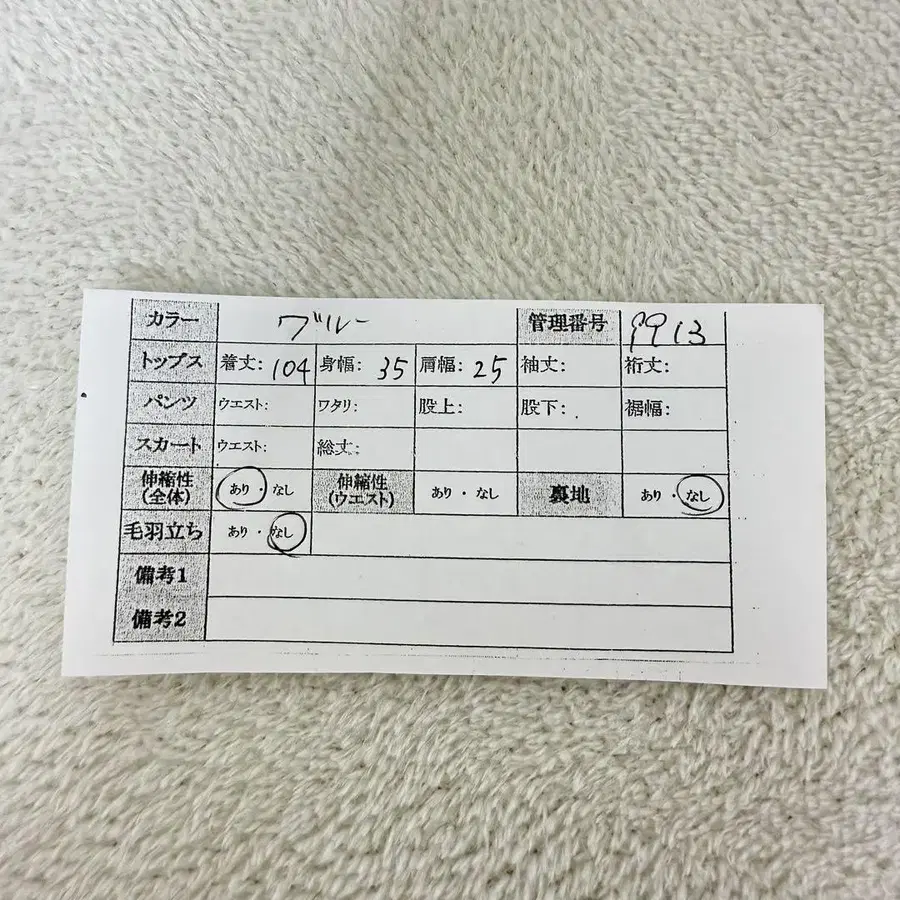 カラー ブルー 管理番号 9913
トップス 着丈: 104 身幅: 35 肩幅: 25 袖丈: 裄丈:
パンツ ウエスト: ワタリ: 股上: 股下: 裾幅:
スカート ウエスト: 総丈:
伸縮性(全体) あり・なし 伸縮性(ウエスト) あり・なし 裏地 あり・なし
毛羽立ち あり・なし
備考1
備考2